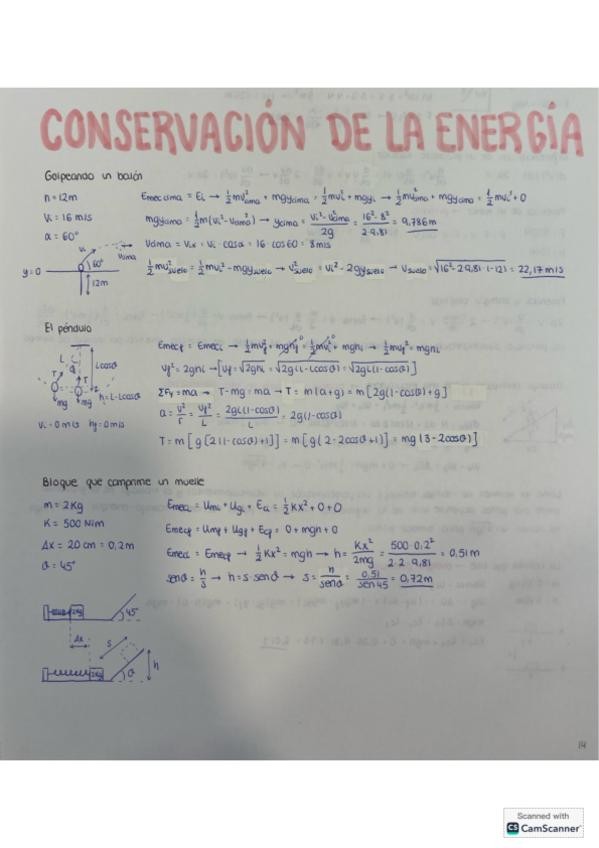 CONSERVACIÓN DE LA ENERGÍA
Golpeando un balón
h = 12m
Vi = 16 m/s
α = 60°
Emec cima = Ei → ½mv²cima + mgycima = ½mvi² + mgyi → ½mv²cima + mgycima = ½mvi² + 0
mgycima = ½m(vi² - vcima²) → ycima = (vi² - v²cima)/2g = (16² · 8²)/(2 · 9,81) = 9,786m
Vcima = Vix = Vi · cosα = 16 · cos60 = 8m/s
½mv²suelo = ½mvi² - mgysuelo → v²suelo = vi² - 2gysuelo → vsuelo = √(16² - 2·9,81·(-12)) = 22,17m/s
y=0
Vi
60°
Vcima
12m
El péndulo
Emecf = Emeci → ½mvf² + mghf⁰ = ½mvi²⁰ + mghi → ½mvf² = mghi
Vf² = 2ghi → [Vf = √2ghi = √2g(L-Lcosθ) = √2gL(1-cosθ)]
ΣFy = ma → T - mg = ma → T = m(a+g) = m[2g(1-cosθ)+g]
a = v²/r = vf²/L = 2gL(1-cosθ)/L = 2g(1-cosθ)
T = m[g[2(1-cosθ)+1]] = m[g(2-2cosθ+1)] = mg(3-2cosθ)]
L
θ
Lcosθ
T
T
mg
mg
h=L-Lcosθ
Vi = 0m/s hf = 0m/s
Bloque que comprime un muelle
m = 2Kg
K = 500 N/m
Δx = 20 cm = 0,2m
θ = 45°
Emeci = Umi + Ugi + Eci = ½Kx² + 0 + 0
Emecf = Umf + Ugf + Ecf = 0 + mgh + 0
Emeci = Emecf → ½Kx² = mgh → h = Kx²/2mg = (500 · 0,2²)/(2 · 2 · 9,81) = 0,51m
senθ = h/s → h = s · senθ → s = h/senθ = 0,51/sen45 = 0,72m
2Kg
45°
Δx
s
2Kg
θ
h
14
Scanned with
CS CamScanner